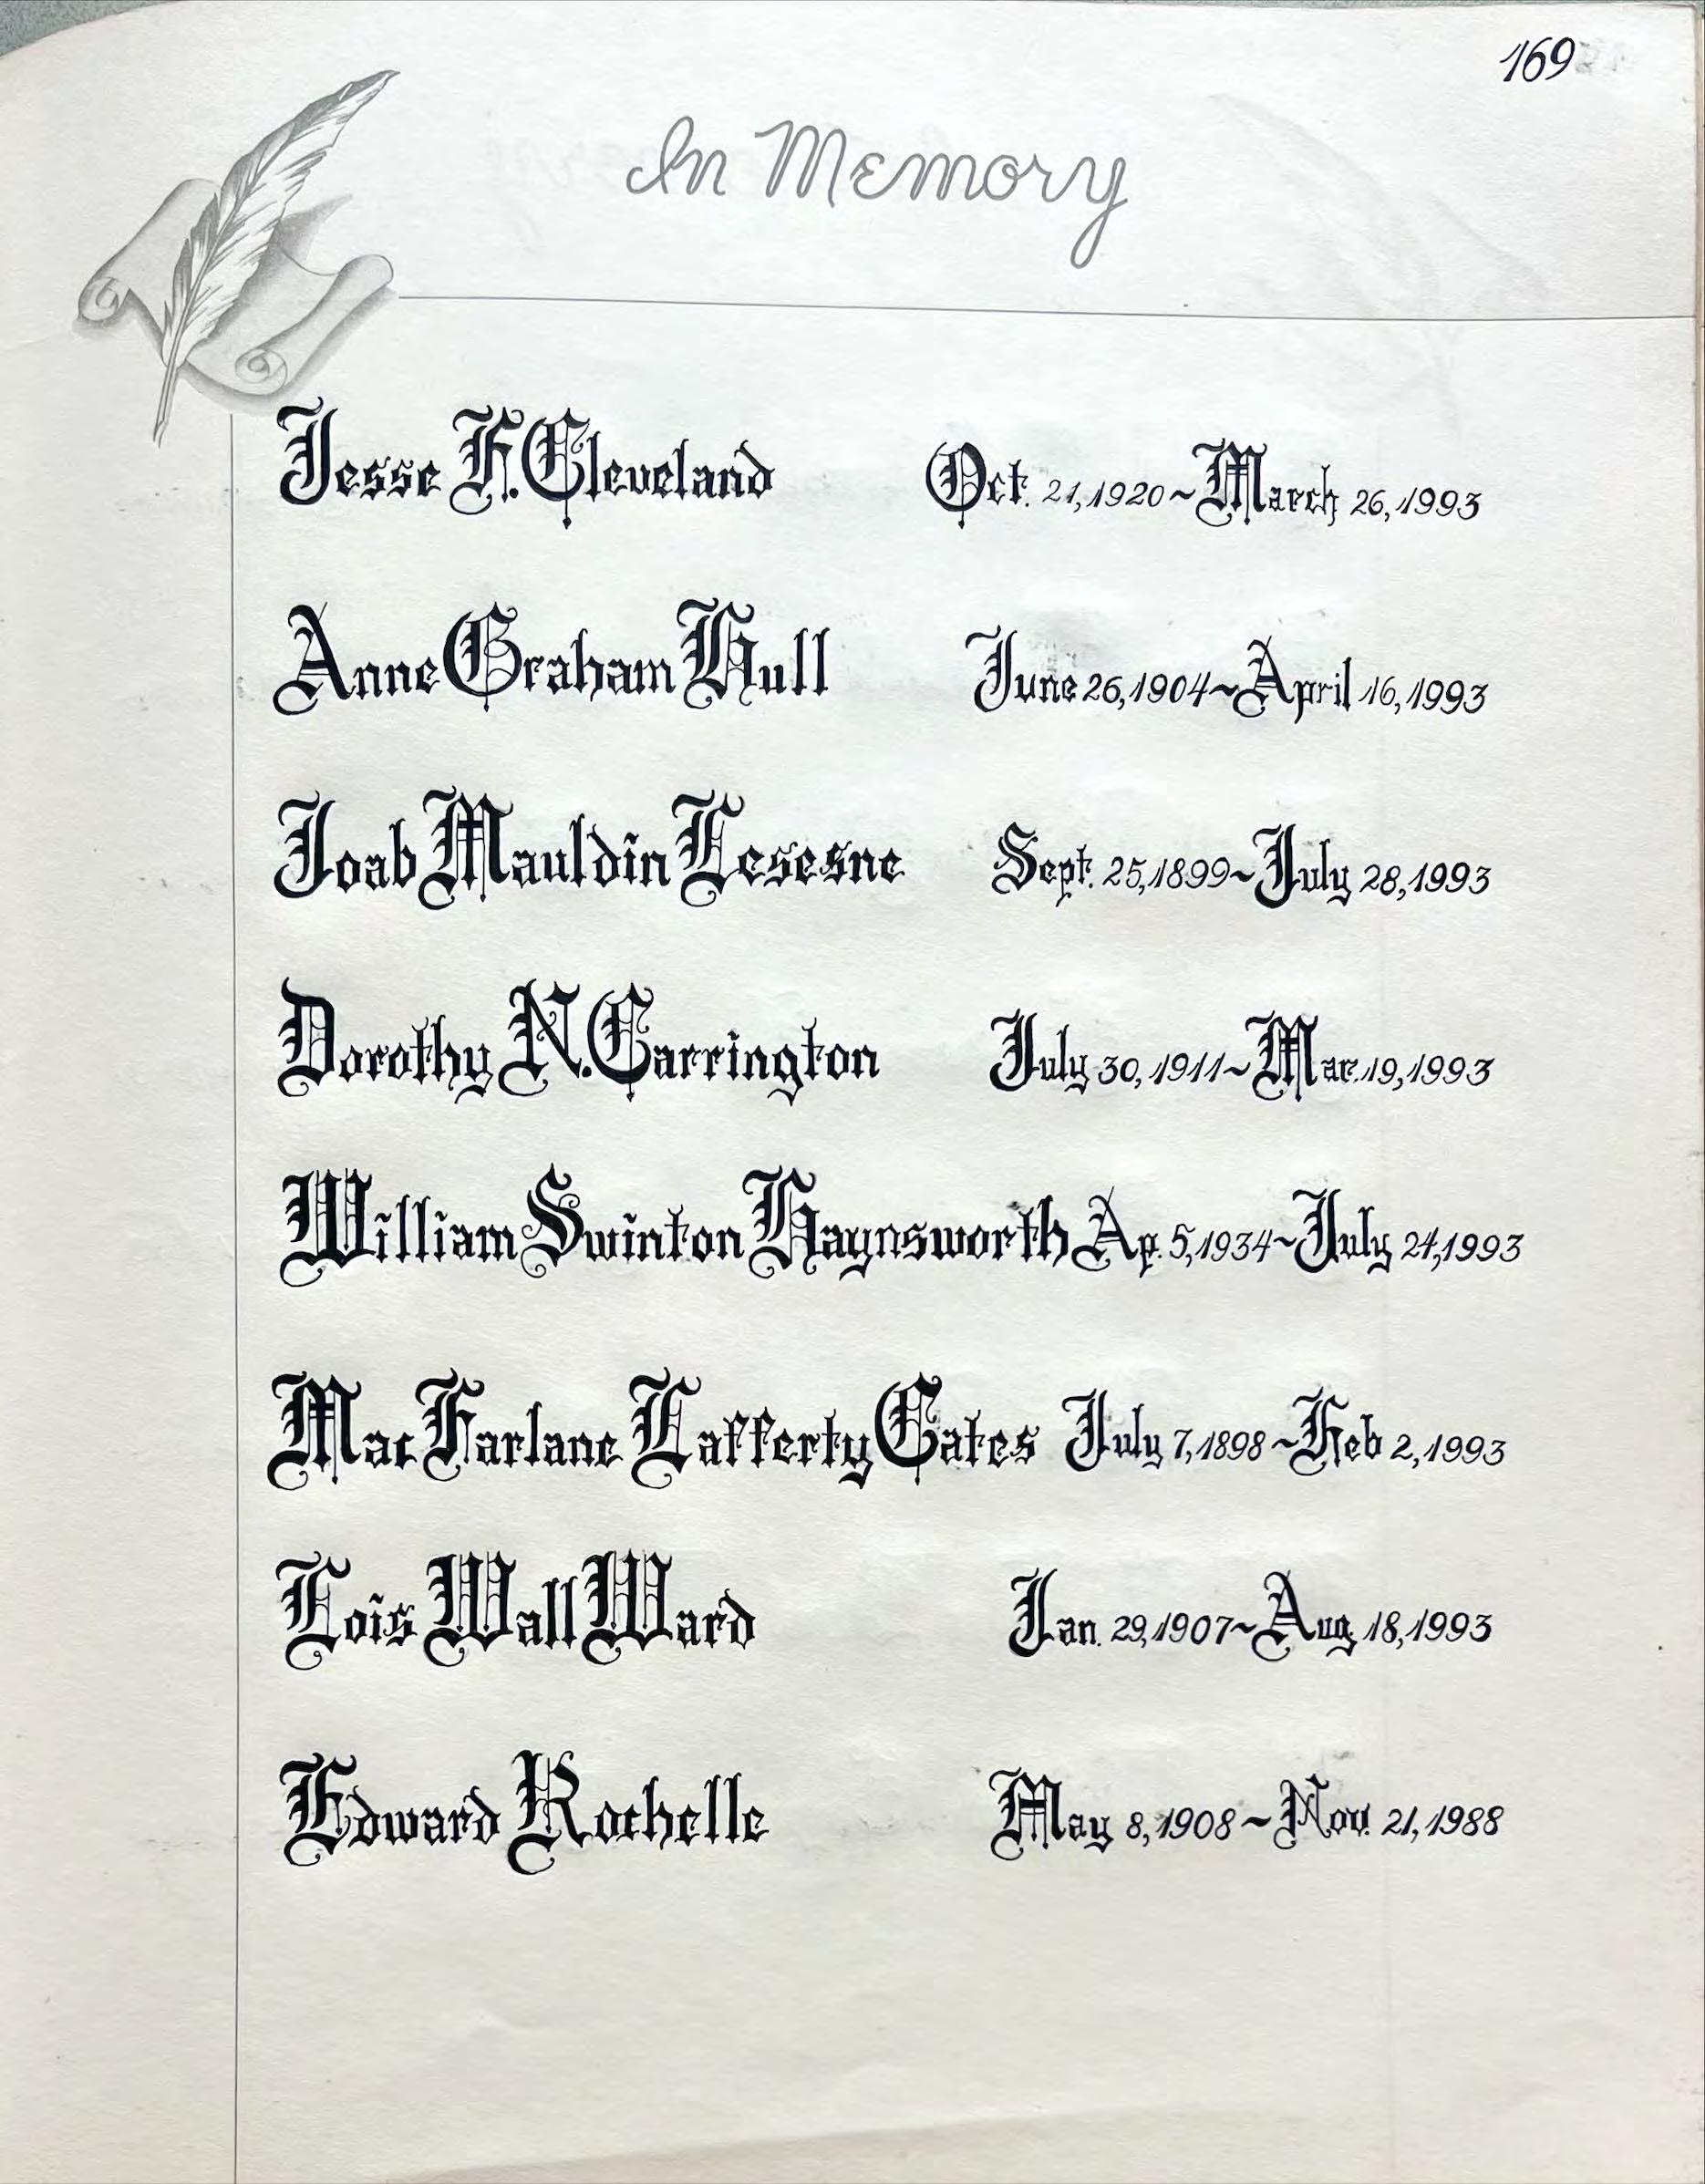 169
In Memory
Jesse F. Cleveland Oct. 21, 1920 ~ March 26, 1993
Anne Graham Hull June 26, 1904 ~ April 16, 1993
Joab Mauldin Lesesne Sept. 25, 1899 ~ July 28, 1993
Dorothy N. Carrington July 30, 1911 ~ Mar. 19, 1993
William Swinton Haynsworth Ap. 5, 1934 ~ July 24, 1993
Mac Farlane Lafferty Gates July 7, 1898 ~ Feb 2, 1993
Lois Wall Ward Jan. 29, 1907 ~ Aug. 18, 1993
Edward Rochelle May 8, 1908 ~ Nov. 21, 1988